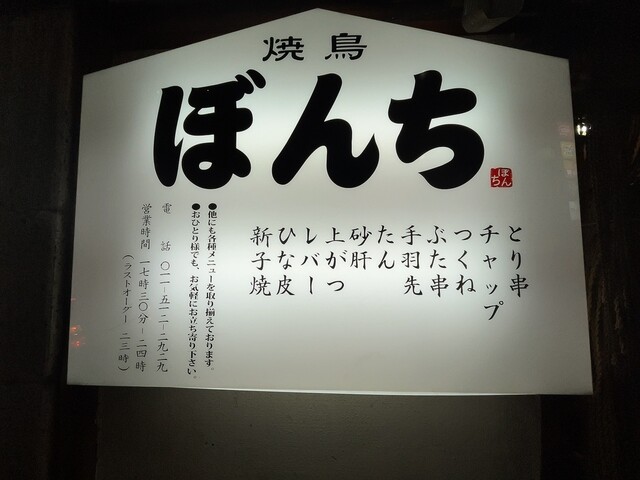 焼鳥
ぼんち
ぼんち
とり串
チャップ
つくね
ぶた串
手羽先
たん
砂肝
上がつ
レバー
ひな皮
新子焼
●他にも各種メニューを取り揃えております。
●おひとり様でも、お気軽にお立ち寄り下さい。
電話 〇一一-五一二-二九二九
営業時間 一七時三〇分-二四時
(ラストオーダー 二三時)